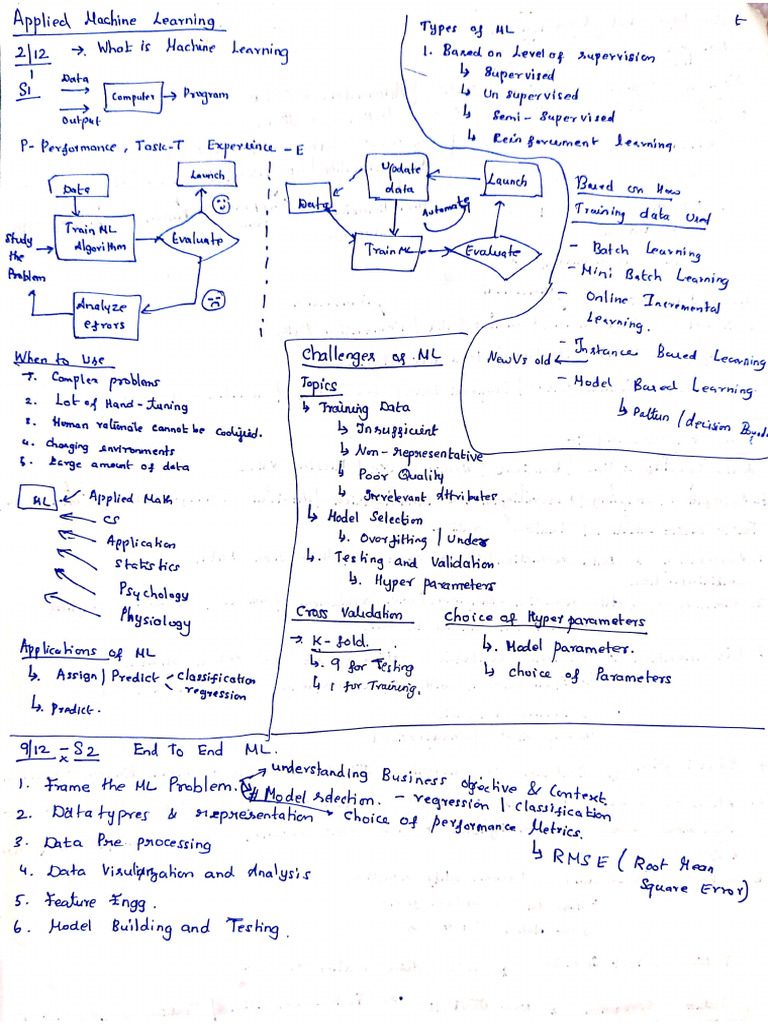 Applied Machine Learning
2/12 → What is Machine Learning
S1
Data
Output
Computer → Program
P- Performance, Task-T Experience - E
Data
Launch
Train ML
Algorithm
Evaluate
Study
the
Problem
Analyze
errors
Update
data
Launch
Data
Automate
Train ML
Evaluate
Types of ML
1. Based on Level of supervision
↳ Supervised
↳ Un supervised
↳ Semi - Supervised
↳ Reinforcement learning.
Based on How
Training data Used
- Batch Learning
- Mini Batch Learning
- Online Incremental
Learning.
- Instance Based Learning
New Vs old ←
- Model Based Learning
↳ Pattern / decision
When to Use
1. Complex problems
2. Lot of Hand-tuning
3. Human rationale cannot be
4. Changing environments
5. Large amount of data
ML ← Applied Math
← CS
← Application
← Statistics
← Psychology
← Physiology
Applications of ML
↳ Assign | Predict
Classification
regression
↳ Predict.
Challenges of ML
Topics
↳ Training Data
↳ Insufficient
↳ Non-representative
↳ Poor Quality
↳ Irrelevant attributes
↳ Model Selection
↳ Overfitting | Under
↳ Testing and Validation
↳ Hyper parameters
Cross Validation
→ K-fold.
↳ 9 for Testing
↳ 1 for Training.
Choice of Hyperparameters
↳ Model parameter.
↳ choice of Parameters
9/12 - S2 End To End ML.
1. Frame the ML Problem. → understanding Business objective & Context.
# Model selection. - regression | classification
2. Datatypres & representation Choice of performance Metrics.
↳ RMSE ( Root Mean
Square Error)
3. Data Pre processing
4. Data and Analysis
5. Feature Engg.
6. Model Building and Testing.